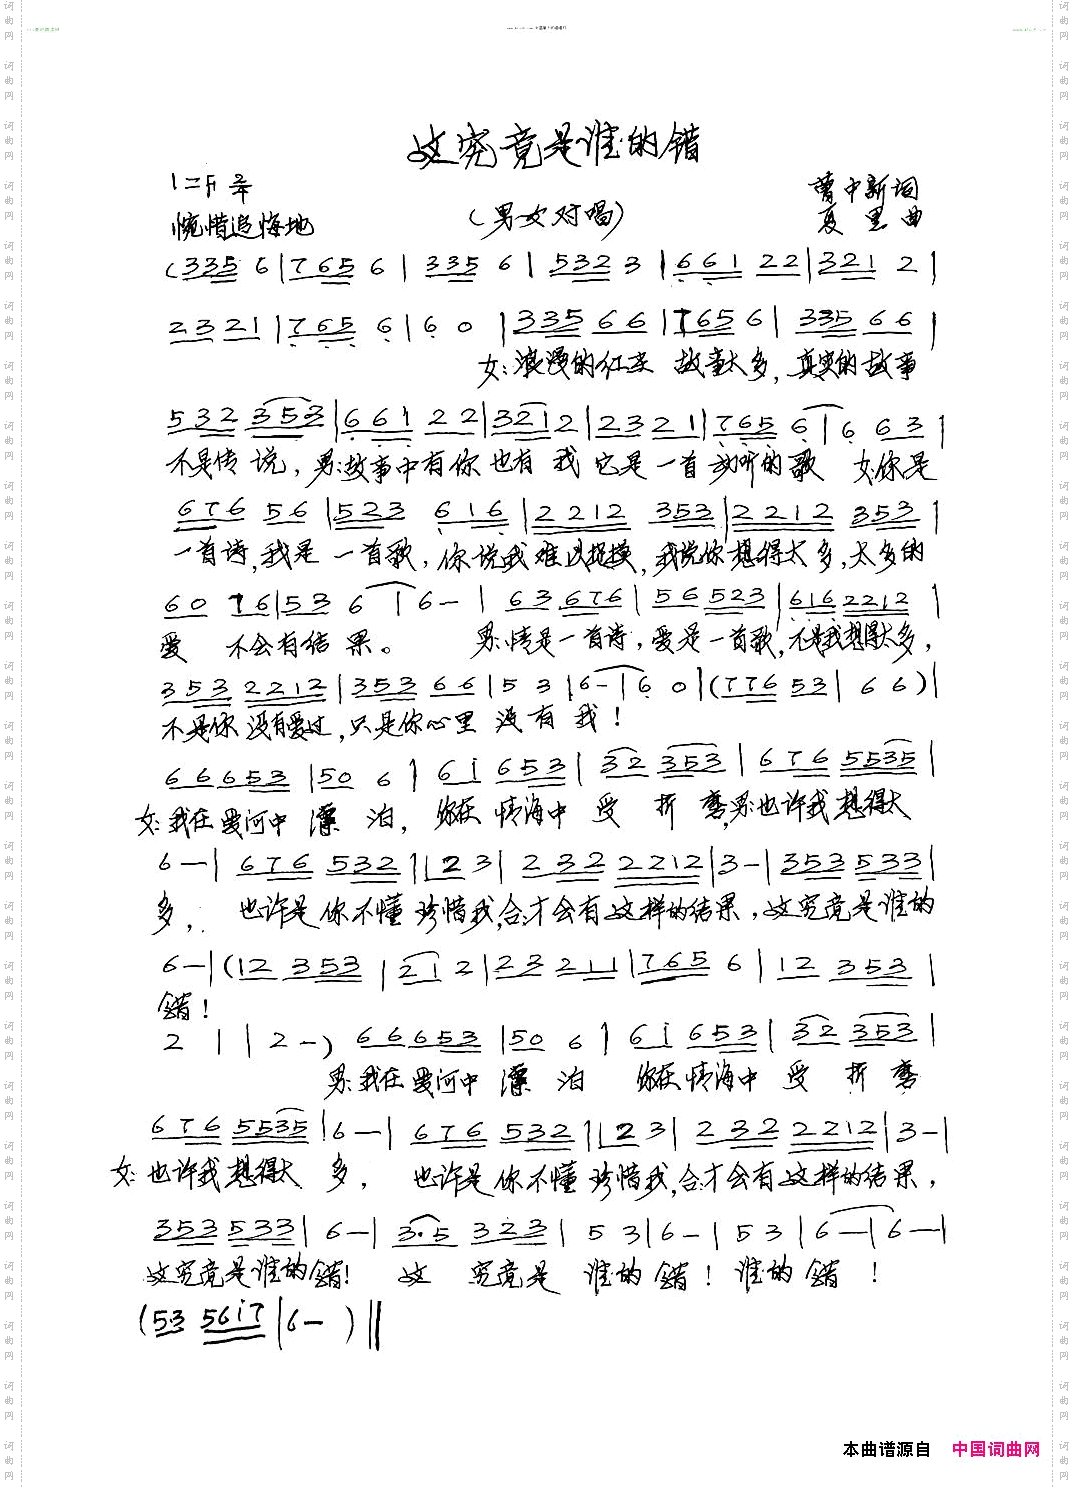 这究竟是谁的错
1=F 2/4
曹中新词
惋惜追悔地
(男女对唱)
夏里曲
(335 6|765 6|335 6|532 3|661 22|321 2|
2321|765 6|6 0|335 66|1765 6|335 66|
女:浪漫的红尘 故事太多,真实的故事
532 353|661 22|3212|2321|765 6|6 63|
不是传说,男:故事中有你也有我 它是一首动听的歌 女:你是
676 56|523 616|2212 353|2212 353|
一首诗,我是一首歌,你说我难以捉摸,我说你想得太多,太多的
60 16|53 6|6-|63 676|56 523|616 2212|
爱 不会有结果。 男:情是一首诗,爱是一首歌,不是我想得太多,
353 2212|353 66|5 3|6-|6 0|(776 53|66)|
不是你没有爱过,只是你心里没有我!
66653|50 6|6i 653|32 353|676 5535|
女:我在爱河中漂泊,你在情海中受折磨,男:也许我想得太
6-|676 532|1 23|2 32 2212|3-|353 533|
多, 也许是你不懂珍惜我,合:才会有这样的结果,这究竟是谁的
6-|(12 353|21 2|23 211|765 6|12 353|
错!
2 1|2-)66653|50 6|6i 653|32 353|
男:我在爱河中漂泊 你在情海中受折磨
676 5535|6-|676 532|1 23|2 32 2212|3-|
女:也许我想得太多, 也许是你不懂珍惜我,合:才会有这样的结果,
353 533|6-|3·5 323|5 3|6-|5 3|6-|6-|
这究竟是谁的错! 这究竟是谁的错!谁的错!
(53 56i7|6-)||
本曲谱源自 中国词曲网